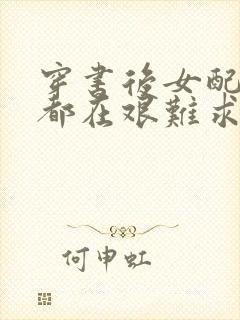 穿書後女配
都在艱難求
何申虹